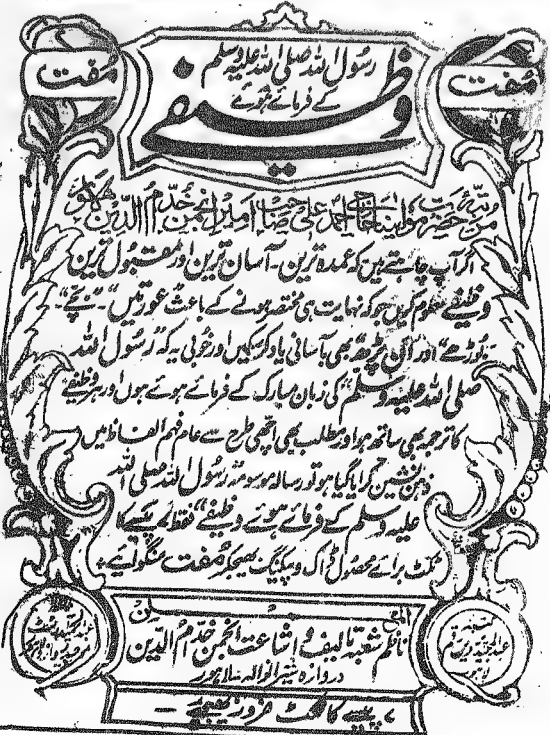 مُفت
مُفت
رسُول اللہ صلی اللہ علیہ وسلم
کے فرمائے ہوئے
وظیفے
مرتبہ حضرت مولینا احمد علی صاحب امیر انجمن خدام الدین لاہور
اگر آپ چاہتے ہیں کہ عمدہ ترین۔ آسان ترین اور مقبُول ترین
وظیفے معلوم کریں جو کہ نہایت ہی مختصر ہونے کے باعث عورتیں"۔ "بچے"
بُوڑھے" اور اَن پڑھ بھی بآسانی یاد کر سکیں اور خوبی یہ کہ "رسُول اللہ
صلی اللہ علیہ وسلم" کی زبان مبارک کے فرمائے ہوئے ہوں اور ہر وظیفے
کا ترجمہ بھی ساتھ ہو اور مطلب بھی اچھی طرح سے عام فہم الفاظ میں
ذہن نشین کرایا گیا ہو تو رسالہ موسومہ رسُول اللہ صلی اللہ
علیہ وسلم کے فرمائے ہوئے وظیفے" فقط پیسے کا
ٹکٹ برائے محصُول ڈاک و پیکنگ بھیجکر مُفت منگوائیے۔
المعلن
ناظم شعبۂ تالیف و اشاعت انجمن خدّام الدّین
دروازہ شیرانوالہ لاہور
پیسے کا ٹکٹ ضرور بھیجیے